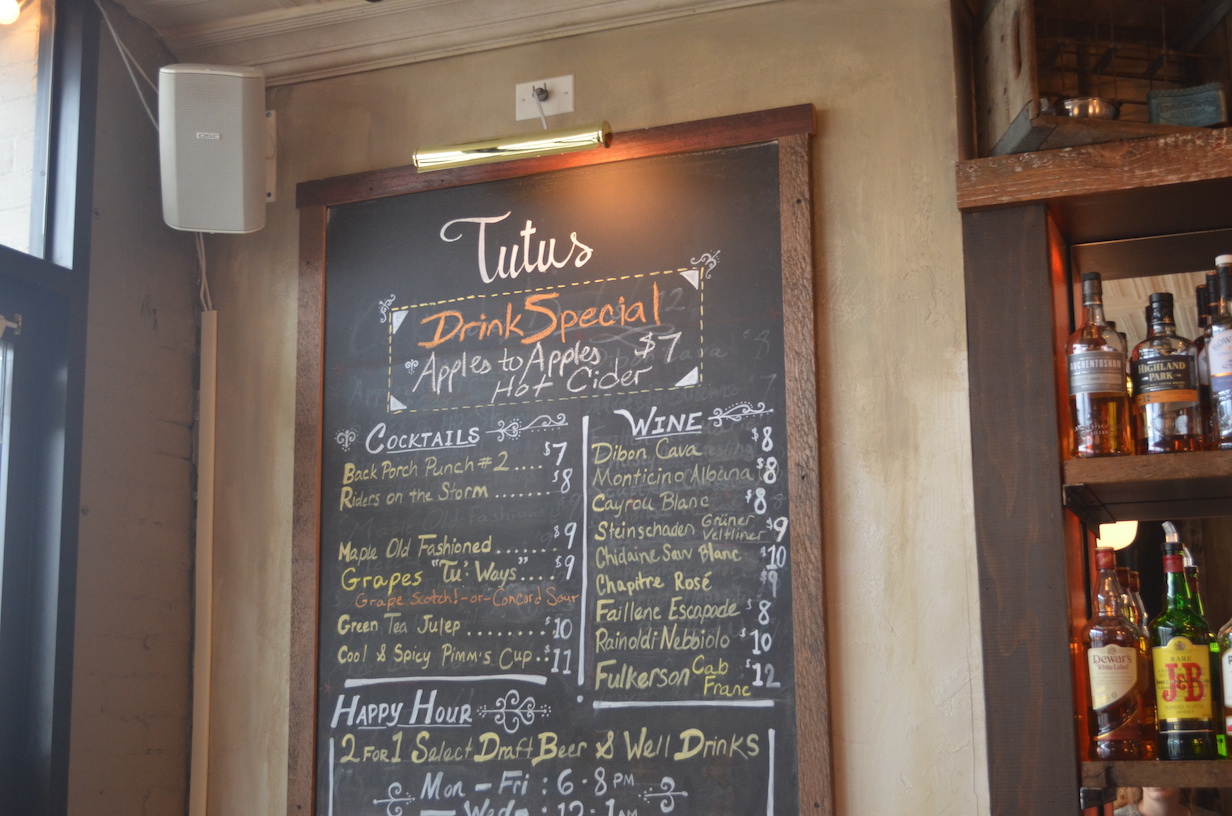 Tutus
Drink Special
Apples to Apples $7
Hot Cider
Cocktails
Back Porch Punch #2 .... $7
Riders on the Storm ....... $8
Maple Old Fashioned ....... $9
Grapes "Tu" Ways" .... $9
Grape Scotch! -or- Concord Sour
Green Tea Julep ........ $10
Cool & Spicy Pimm's Cup .. $11
Wine
Dibon Cava $8
Monticino Albana $8
Cayrou Blanc $8
Steinschaden Grüner Veltliner $9
Chidaine Sauv Blanc $10
Chapitre Rosé $9
Faillenc Escapade $8
Rainoldi Nebbiolo $10
Fulkerson Cab Franc $12
Happy Hour
2 for 1 Select Draft Beer & Well Drinks
Mon - Fri : 6 - 8 PM
Wed 12 - 1 AM
HIGHLAND
PARK
Dewar's
White Label
RARE
J&B